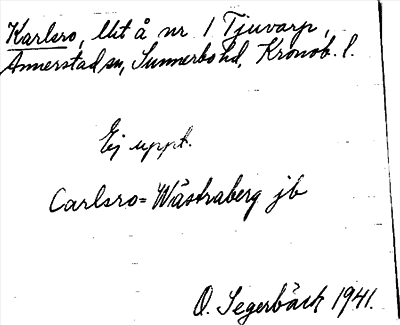 Karlsro, Utt å nr 1 Tjuvarp,
Annerstad sn, Sunnerbo hd, Kronob. l.
Ej uppt.
Carlsro = Wästraberg jb
O. Segerbäck 1941.